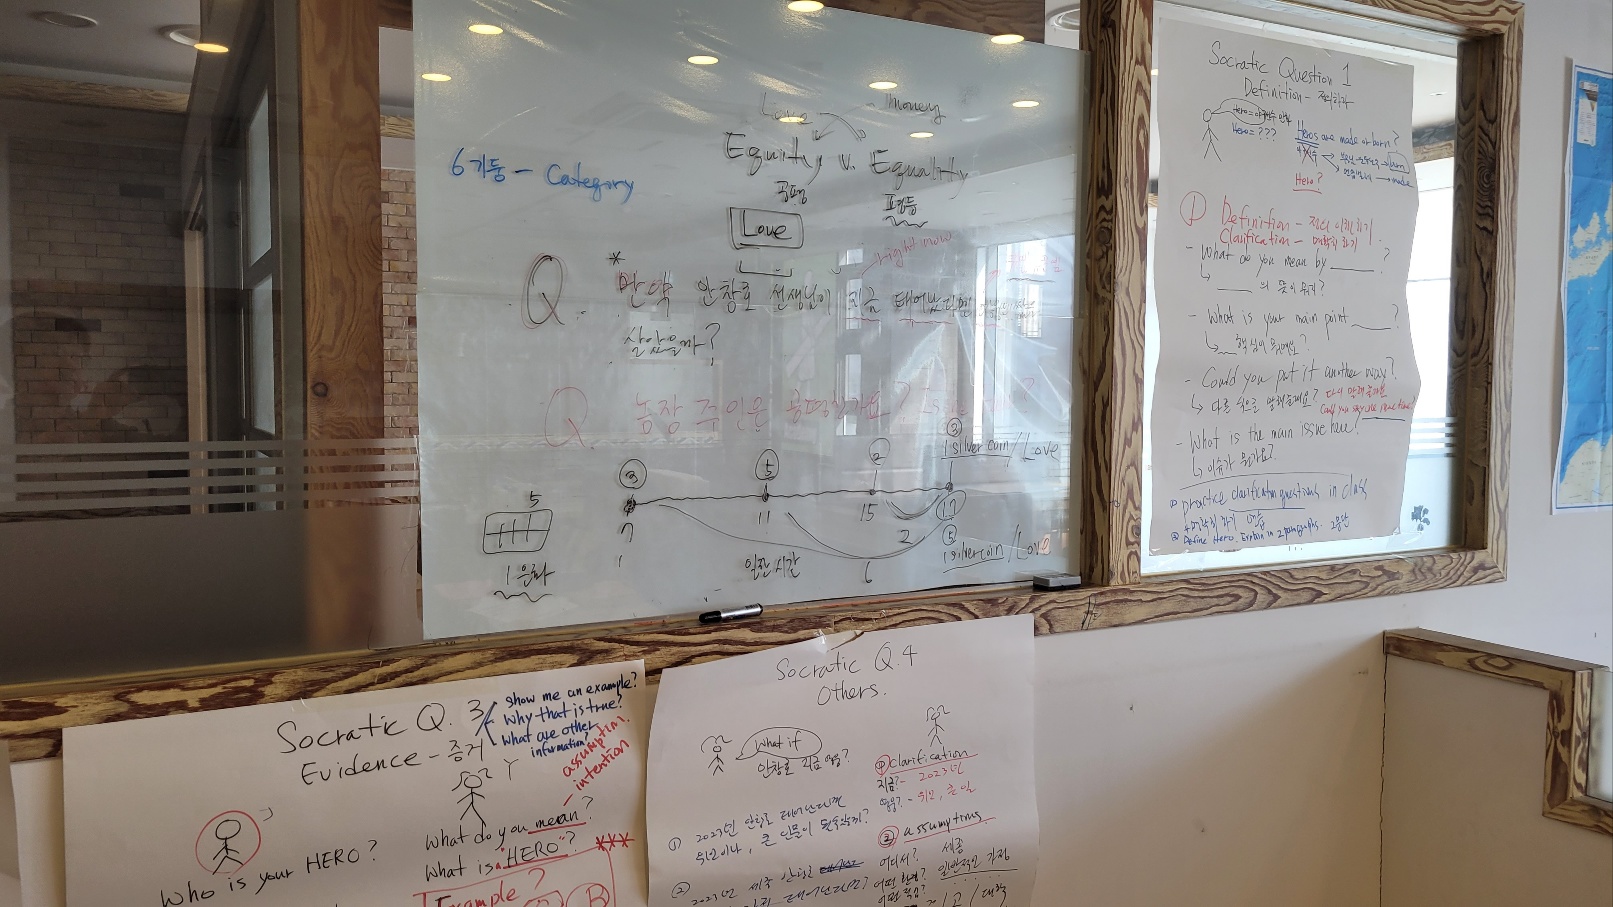 Love money
Equity v. Equality
공평 평등
6기둥 - Category
Love
right now
Q. * 만약 안창호 선생님이 지금 태어났다면
살았을까?
Q. 농장 주인은 공평한가요?
③ ⑤ ② ③
1 silver coin / Love
5
7 11 15 17
2 ⑤
1 silver coin / Love
1은화
일한 시간
6
Socratic Question 1
Definition -
Hero = ???
Heros are made or born?
born
made
Hero?
① Definition - 정의 이해하기
Clarification - 명확히 하기
- What do you mean by ______?
↳ ______의 뜻이 뭐죠?
- What is your main point ______?
↳ 핵심이 뭐예요?
- Could you put it another way?
↳ 다른 식으로 말해줄래요? 다시 말해줄래요
- What is the main issue here?
↳ 이슈가 뭔가요?
① practice clarification questions in class
명확히 하기 연습
② Define Hero. Explain in 2 paragraphs. 2문단
Socratic Q. 3
Evidence - 증거
show me an example?
why that is true?
what are other
information?
assumption
intention
Who is your HERO?
What do you mean?
What is "HERO"? ***
Example?
B
Socratic Q.4
Others.
What if
안창호 지금 영웅?
① clarification
지금? - 2023년
영웅? - 위인, 큰 일
① 2023년 안창호 태어난다면
위인이나, 큰 인물이 될 수 있을까?
② assumptions
어디서? 세종
어떤 환경? 일반적인 가정
② 2023년 세종 안창호